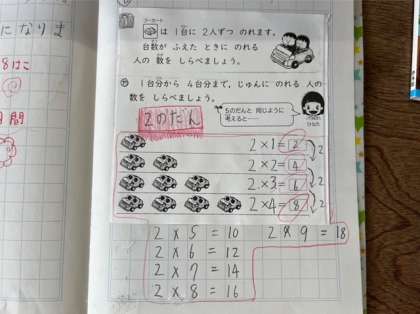 になりま
8はこ
間
ゴーカート
は 1台に 2人ずつ のれます。
台数が ふえた ときに のれる
人の 数を しらべましょう。
㋐ 1台分から 4台分まで、じゅんに のれる 人の
数を しらべましょう。
5のだんと 同じように
考えると…
2のだん
2×1=2
2
2×2=4
2
2×3=6
2
2×4=8
2×5=10 2×9=18
2×6=12
2×7=14
2×8=16